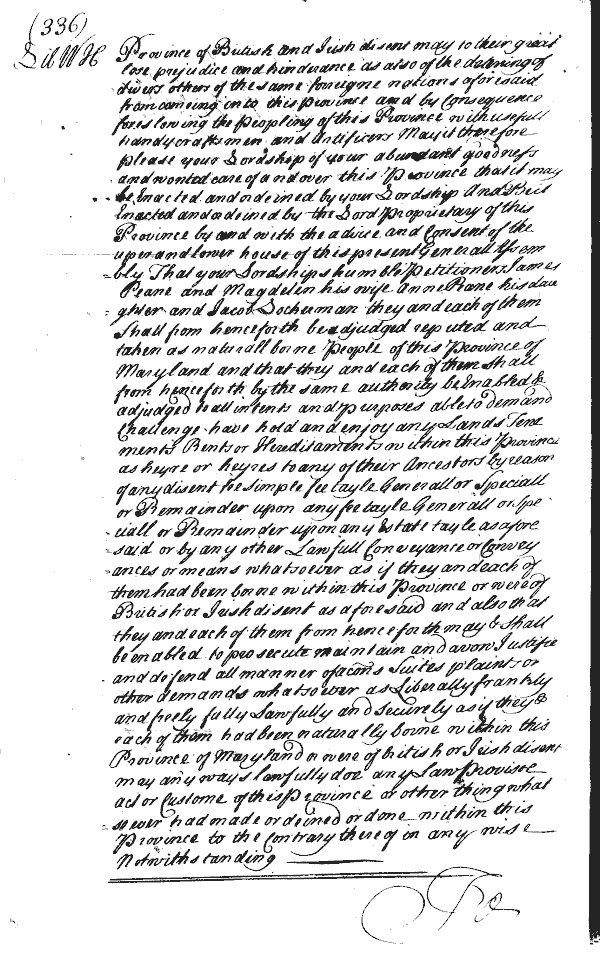 (336)
Lib W H
Province of Brittish and Irish disent may to their great
lose prejudice and hinderance as also of the detering of
divers others of the same foreigne nations aforesaid
from comeing into this Province and by Consequence
foreslowing the Peopling of this Province with usefull
handycraftsmen and Artificers May it therefore
please your Lordship of your abundant goodness
and wonted care of and over this Province that it may
be Enacted and ordeined by your Lordship And Be it
Enacted and ordeined by the Lord Proprietary of this
Province by and with the advise and Consent of the
uper and lower house of this present Generall Assem
bly That your Lordships humble Petitioners James
Peane and Magdelen his wife Anne Peane his dau
ghter and Jacob Lockerman they and each of them
Shall from henceforth be adjudged reputed and
taken as naturall borne People of this Province of
Maryland and that they and each of them shall
from henceforth by the same authority be Enabled &
adjudged to all intents and purposes able to demand
Challenge have hold and enjoy any Lands Tene
ments Rents or Hereditaments within this Province
as heyre or heyres to any of their Ancestors by reason
of any disent fee simple fee tayle Generall or Speciall
or Remainder upon any fee tayle Generall or Spe
ciall or Remainder upon any Estate tayle as afore
said or by any other Lawfull Conveyance or Convey
ances or means whatsoever as if they and each of
them had been borne within this Province or were of
Brittish or Irish disent as aforesaid and also that
they and each of them from henceforth may & shall
be enabled to prosecute maintain and avow Justifie
and defend all manner of accons Suites plaints or
other demands whatsoever as Liberally frankly
and freely fully Lawfully and securely as if they &
each of them had been naturally borne within this
Province of Maryland or were of british or Irish disent
may any ways lawfully doe any Law Provisoe
act or Custome of this Province or other thing what
soever had made ordeined or done within this
Province to the Contrary thereof in any wise
Notwithstanding